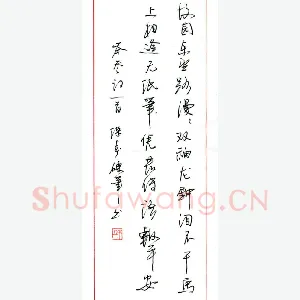 故园东望路漫漫双袖龙钟泪不干马
上相逢无纸笔凭君传语报平安
岑参诗一首
Shufawang.CN